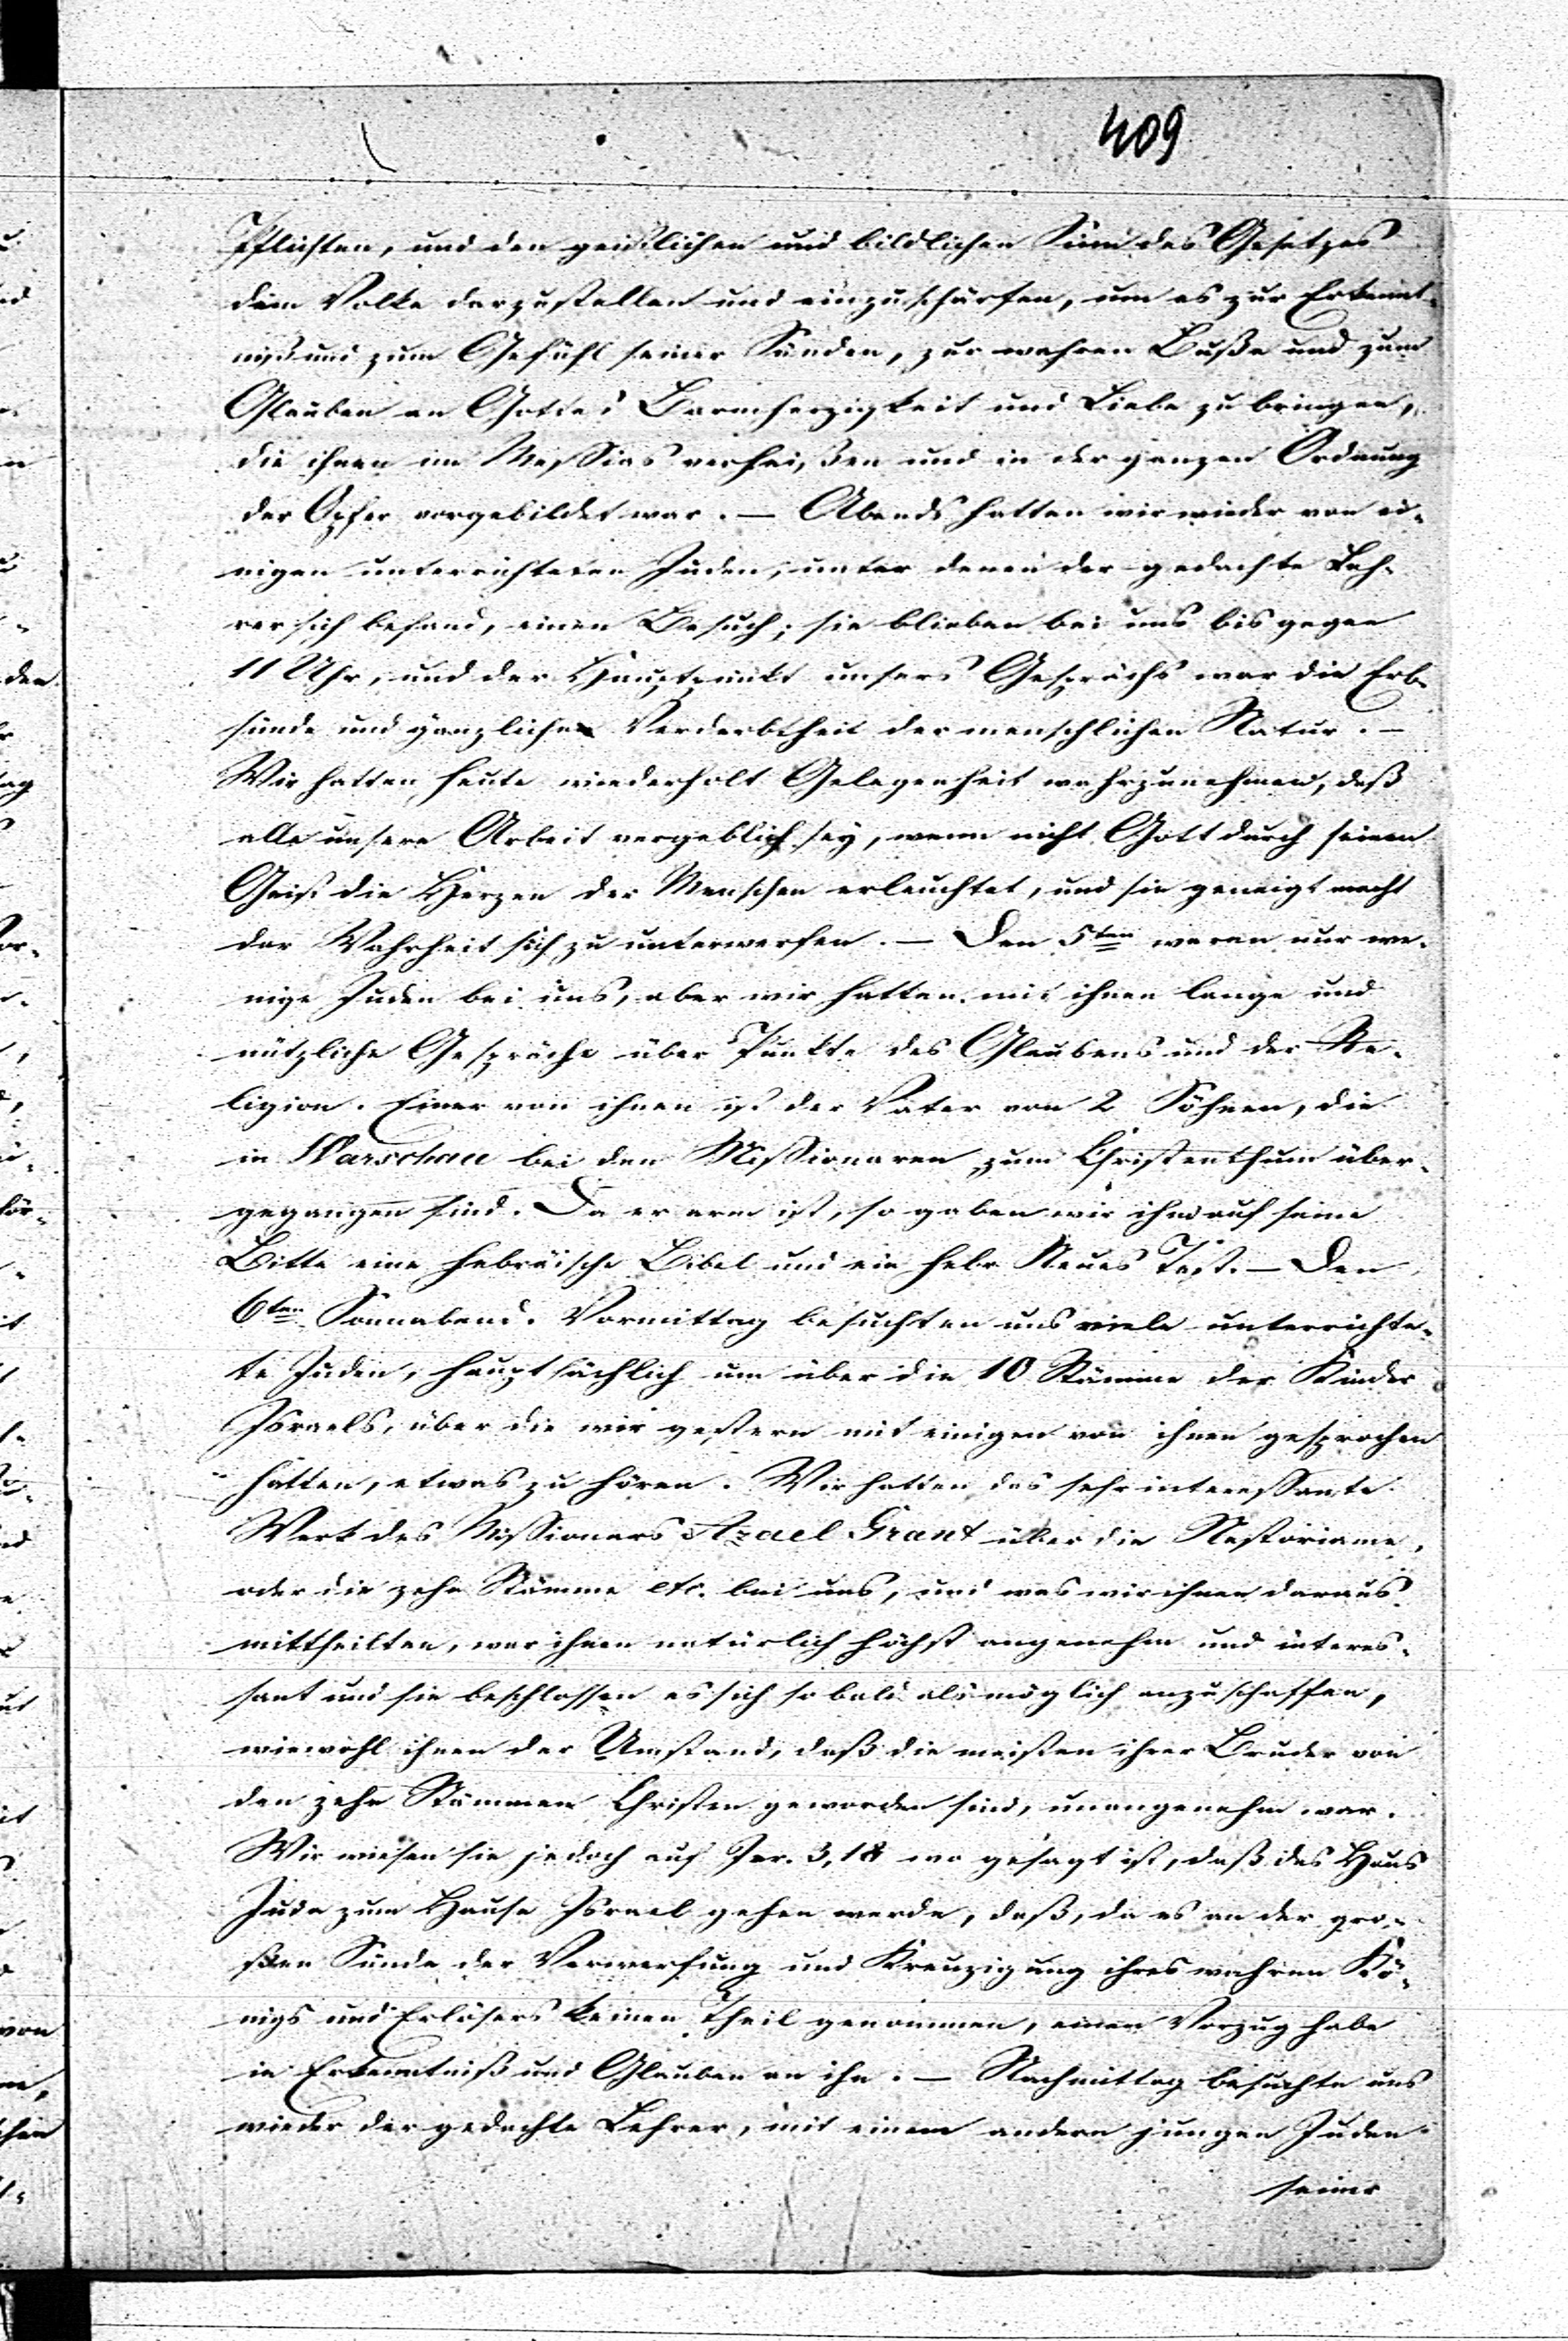 409
Pflichten, und den geistlichen und bildlichen Sinn des Gesetzes
dem Volke darzustellen und einzuschärfen, um es zur Erkennt-
niß und zum Gefühl seiner Sünden, zur wahren Buße und zum
Glauben an Gottes Barmherzigkeit und Liebe zu bringen,
die ihnen im Messias verheißen und in der ganzen Ordnung
der Opfer vorgebildet war. — Abends hatten wir wieder von ei-
nigen unterrichteten Juden, unter denen der gedachte Leh-
rer sich befand, einen Besuch; sie blieben bei uns bis gegen
11 Uhr, und der Hauptpunkt unsers Gesprächs war die Erb-
sünde und gänzliche Verderbtheit der menschlichen Natur. —
Wir hatten heute wiederholt Gelegenheit wahrzunehmen, daß
alle unsere Arbeit vergeblich sey, wenn nicht Gott durch seinen
Geist die Herzen der Menschen erleuchtet, und sie geneigt macht
der Wahrheit sich zu unterwerfen. — Den 5ten waren nur we-
nige Juden bei uns, aber wir hatten mit ihnen lange und
nützliche Gespräche über Punkte des Glaubens und der Re-
ligion. Einer von ihnen ist der Vater von 2 Söhnen, die
in Warschau bei den Missionaren zum Christenthum über-
gegangen sind. Da er arm ist, so gaben wir ihm auf seine
Bitte eine hebräische Bibel und ein hebr Neues Test. — Den
6ten Sonnabend. Vormittag besuchten uns viele unterrichte-
te Juden, hauptsächlich um über die 10 Stämme der Kinder
Israels, über die wir gestern mit einigen von ihnen gesprochen
hatten, etwas zu hören. Wir hatten das sehr interessante
Werk des Missionars Azael Grant über die Nestoriane,
oder die zehn Stämme etc. bei uns, und was wir ihnen daraus
mittheilten, war ihnen natürlich höchst angenehm und interes-
sant und sie beschlossen es sich so bald als möglich anzuschaffen,
wiewohl ihnen der Umstand, daß die meisten ihrer Brüder von
den zehn Stämmen Christen geworden sind, unangenehm war.
Wir wiesen sie jedoch auf Jer. 3,18 wo gesagt ist, daß das Haus
Juda zum Hause Israel gehen werde, daß, da es an der gro-
ßen Sünde der Verwerfung und Kreuzigung ihres wahren Kö-
nigs und Erlösers keinen Theil genommen, einen Vorzug habe
in Erkenntniß und Glauben an ihn. — Nachmittag besuchte uns
wieder der gedachte Lehrer, mit einem andern jungen Juden
seiner